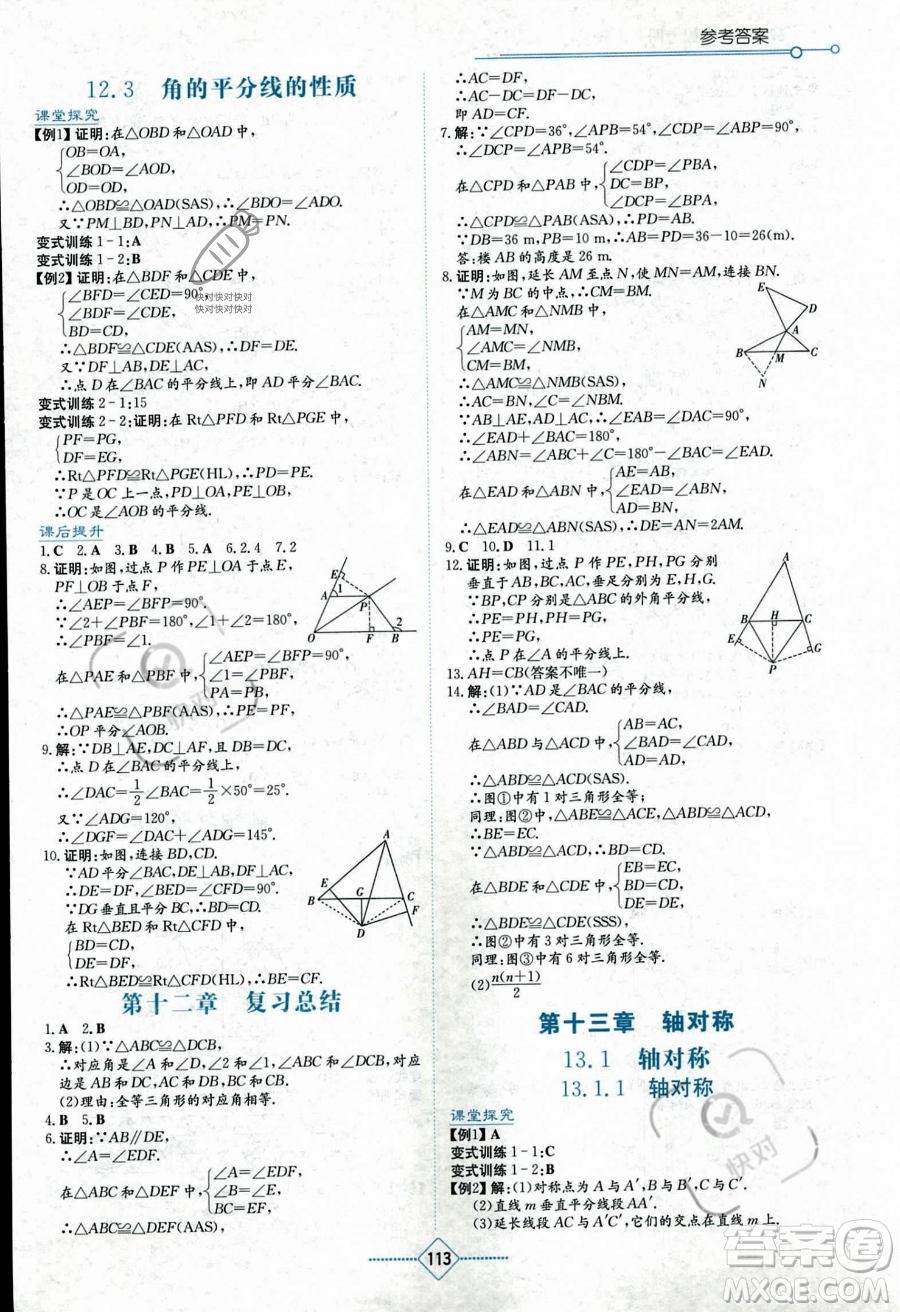 参考答案
12.3 角的平分线的性质
课堂探究
【例1】证明:在△OBD和△OAD中,
OB=OA,
∠BOD=∠AOD,
OD=OD,
∴△OBD≌△OAD(SAS),∴∠BDO=∠ADO.
又∵PM⊥BD,PN⊥AD,∴PM=PN.
变式训练1-1:A
变式训练1-2:B
【例2】证明:在△BDF和△CDE中,
∠BFD=∠CED=90°,
∠BDF=∠CDE,
BD=CD,
∴△BDF≌△CDE(AAS),∴DF=DE.
又∵DF⊥AB,DE⊥AC,
∴点D在∠BAC的平分线上,即AD平分∠BAC.
变式训练2-1:15
变式训练2-2:证明:在Rt△PFD和Rt△PGE中,
PF=PG,
DF=EG,
∴Rt△PFD≌Rt△PGE(HL),∴PD=PE.
∵P是OC上一点,PD⊥OA,PE⊥OB,
∴OC是∠AOB的平分线.
课后提升
1.C 2.A 3.B 4.B 5.A 6.2.4 7.2
8.证明:如图,过点P作PE⊥OA于点E,
PF⊥OB于点F,
∴∠AEP=∠BFP=90°.
∵∠2+∠PBF=180°,∠1+∠2=180°,
∴∠PBF=∠1.
在△PAE和△PBF中,
∠AEP=∠BFP=90°,
∠1=∠PBF,
PA=PB,
∴△PAE≌△PBF(AAS),∴PE=PF,
∴OP平分∠AOB.
9.解:∵DB⊥AE,DC⊥AF,且DB=DC,
∴点D在∠BAC的平分线上,
∴∠DAC=1/2∠BAC=1/2×50°=25°.
又∵∠ADG=120°,
∴∠DGF=∠DAC+∠ADG=145°.
10.证明:如图,连接BD,CD.
∵AD平分∠BAC,DE⊥AB,DF⊥AC,
∴DE=DF,∠BED=∠CFD=90°.
∵DG垂直且平分BC,∴BD=CD.
在Rt△BED和Rt△CFD中,
BD=CD,
DE=DF,
∴Rt△BED≌Rt△CFD(HL),∴BE=CF.
第十二章 复习总结
1.A 2.B
3.解:(1)∵△ABC≌△DCB,
∴对应角是∠A和∠D,∠ABC和∠DCB,对应
边是AB和DC,AC和DB.
(2)理由:全等三角形的对应角相等.
4.B 5.B
6.证明:∵AB∥DE,
∴∠A=∠EDF.
在△ABC与△DEF中,
∠A=∠EDF,
∠B=∠E,
BC=EF,
∴△ABC≌△DEF(AAS),
∴AC=DF,
∴AC-DC=DF-DC,
即AD=CF.
7.解:∵∠CPD=36°,∠APB=54°,∠CDP=∠ABP=90°,
∴∠DCP=∠APB=54°.
在△CPD和△PAB中,
∠CDP=∠PBA,
DC=BP,
∠DCP=∠BPA,
∴△CPD≌△PAB(ASA),∴DP=BA.
∵DB=36 m,PB=10 m,∴AB=36-10=26(m).
答:楼AB的高度是26 m.
8.证明:如图,延长AM至点N,使MN=AM,连接BN.
∵M为BC的中点,∴BM=CM.
在△AMC和△NMB中,
AM=MN,
∠AMC=∠NMB,
CM=BM,
∴△AMC≌△NMB(SAS),
∴AC=BN,∠C=∠NBM.
∵AB⊥AE,AD⊥AC,∴∠EAB=∠DAC=90°,
∴∠EAD+∠BAC=180°,
∴∠ABN=∠ABC+∠C=180°-∠BAC=∠EAD.
在△EAD和△ABN中,
AE=AB,
∠EAD=∠ABN,
AD=BN,
∴△EAD≌△ABN(SAS),∴DE=AN=2AM.
9.C 10.D 11.1
12.证明:如图,过点P作PE,PH,PG分别
垂直于AB,BC,AC,垂足分别为E,H,G.
∵BP,CP分别是△ABC的外角平分线,
∴PE=PH,PH=PG,
∴PE=PG,
∴点P在∠A的平分线上.
13.AH=CB(答案不唯一)
14.解:(1)∵AD是∠BAC的平分线,
∴∠BAD=∠CAD.
在△ABD与△ACD中,
AB=AC,
∠BAD=∠CAD,
AD=AD,
∴△ABD≌△ACD(SAS).
∴图①中有1对三角形全等;
同理:图②中,△ABE≌△ACE,△ABD≌△ACD,
∴BE=EC.
在△BDE和△CDE中,
EB=EC,
BD=CD,
DE=DE,
∴△BDE≌△CDE(SSS),
∴图②中有3对三角形全等.
同理:图③中有6对三角形全等.
(2)n(n+1)/2
第十三章 轴对称
13.1 轴对称
13.1.1 轴对称
课堂探究
【例1】A
变式训练1-1:C
变式训练1-2:B
【例2】解:(1)对称点为A与A′,B与B′,C与C′.
(2)直线m垂直平分线段AA′.
(3)延长线段AC与A′C′,它们的交点在直线m上.
113
快对快对快对
快对快对快对
快对
答案圈
MXQE.COM